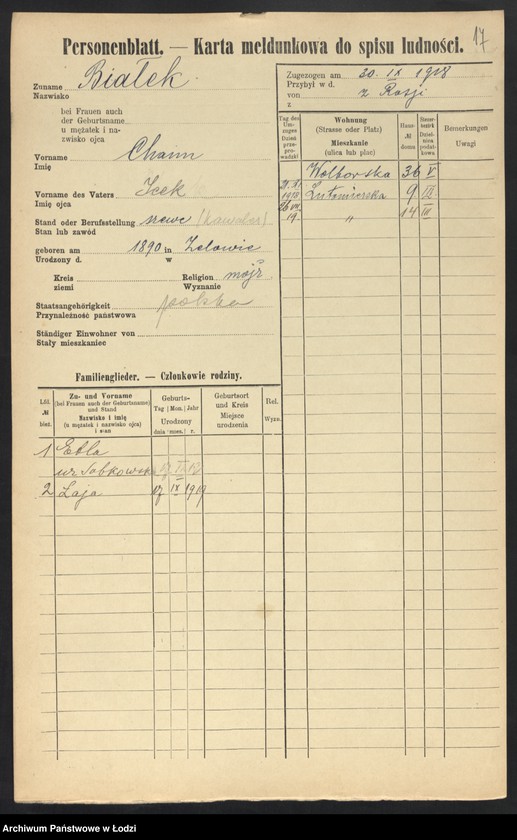 17
Personenblatt. — Karta meldunkowa do spisu ludności.
Zuname Białek
Nazwisko
bei Frauen auch
der Geburtsname
u mężatek i na-
zwisko ojca
Vorname Chaim
Imię
Vorname des Vaters Icek
Imię ojca
Stand oder Berufsstellung szewc (kawaler)
Stan lub zawód
geboren am 1890 in Zelowie
Urodzony d. w
Kreis Religion mojż
ziemi Wyznanie
Staatsangehörigkeit polska
Przynależność państwowa
Ständiger Einwohner von
Stały mieszkaniec
Zugezogen am 20. IX 1918
Przybył w d.
von z Rosji
z
Tag des Um-zuges Dzień prze-prowadzki
Wohnung (Strasse oder Platz) Mieszkanie (ulica lub plac)
Haus- № domu
Bemerkungen Uwagi
Wolborska 36 V
21. XI. 1918 Lutomierska 9 III
26 VII. 19. „ 14 III
Familienglieder. — Członkowie rodziny.
Lfd. № bież.
Zu- und Vorname (bei Frauen auch der Geburtsname) und Stand Nazwisko i imię (u mężatek i nazwisko ojca) i stan
Geburts- Tag | Mon. | Jahr Urodzony dnia | mies. | r.
Geburtsort und Kreis Miejsce urodzenia
Rel. Wyzn.
1 Etla
ur. Sabkowska
2 Łaja IX 1919
Archiwum Państwowe w Łodzi